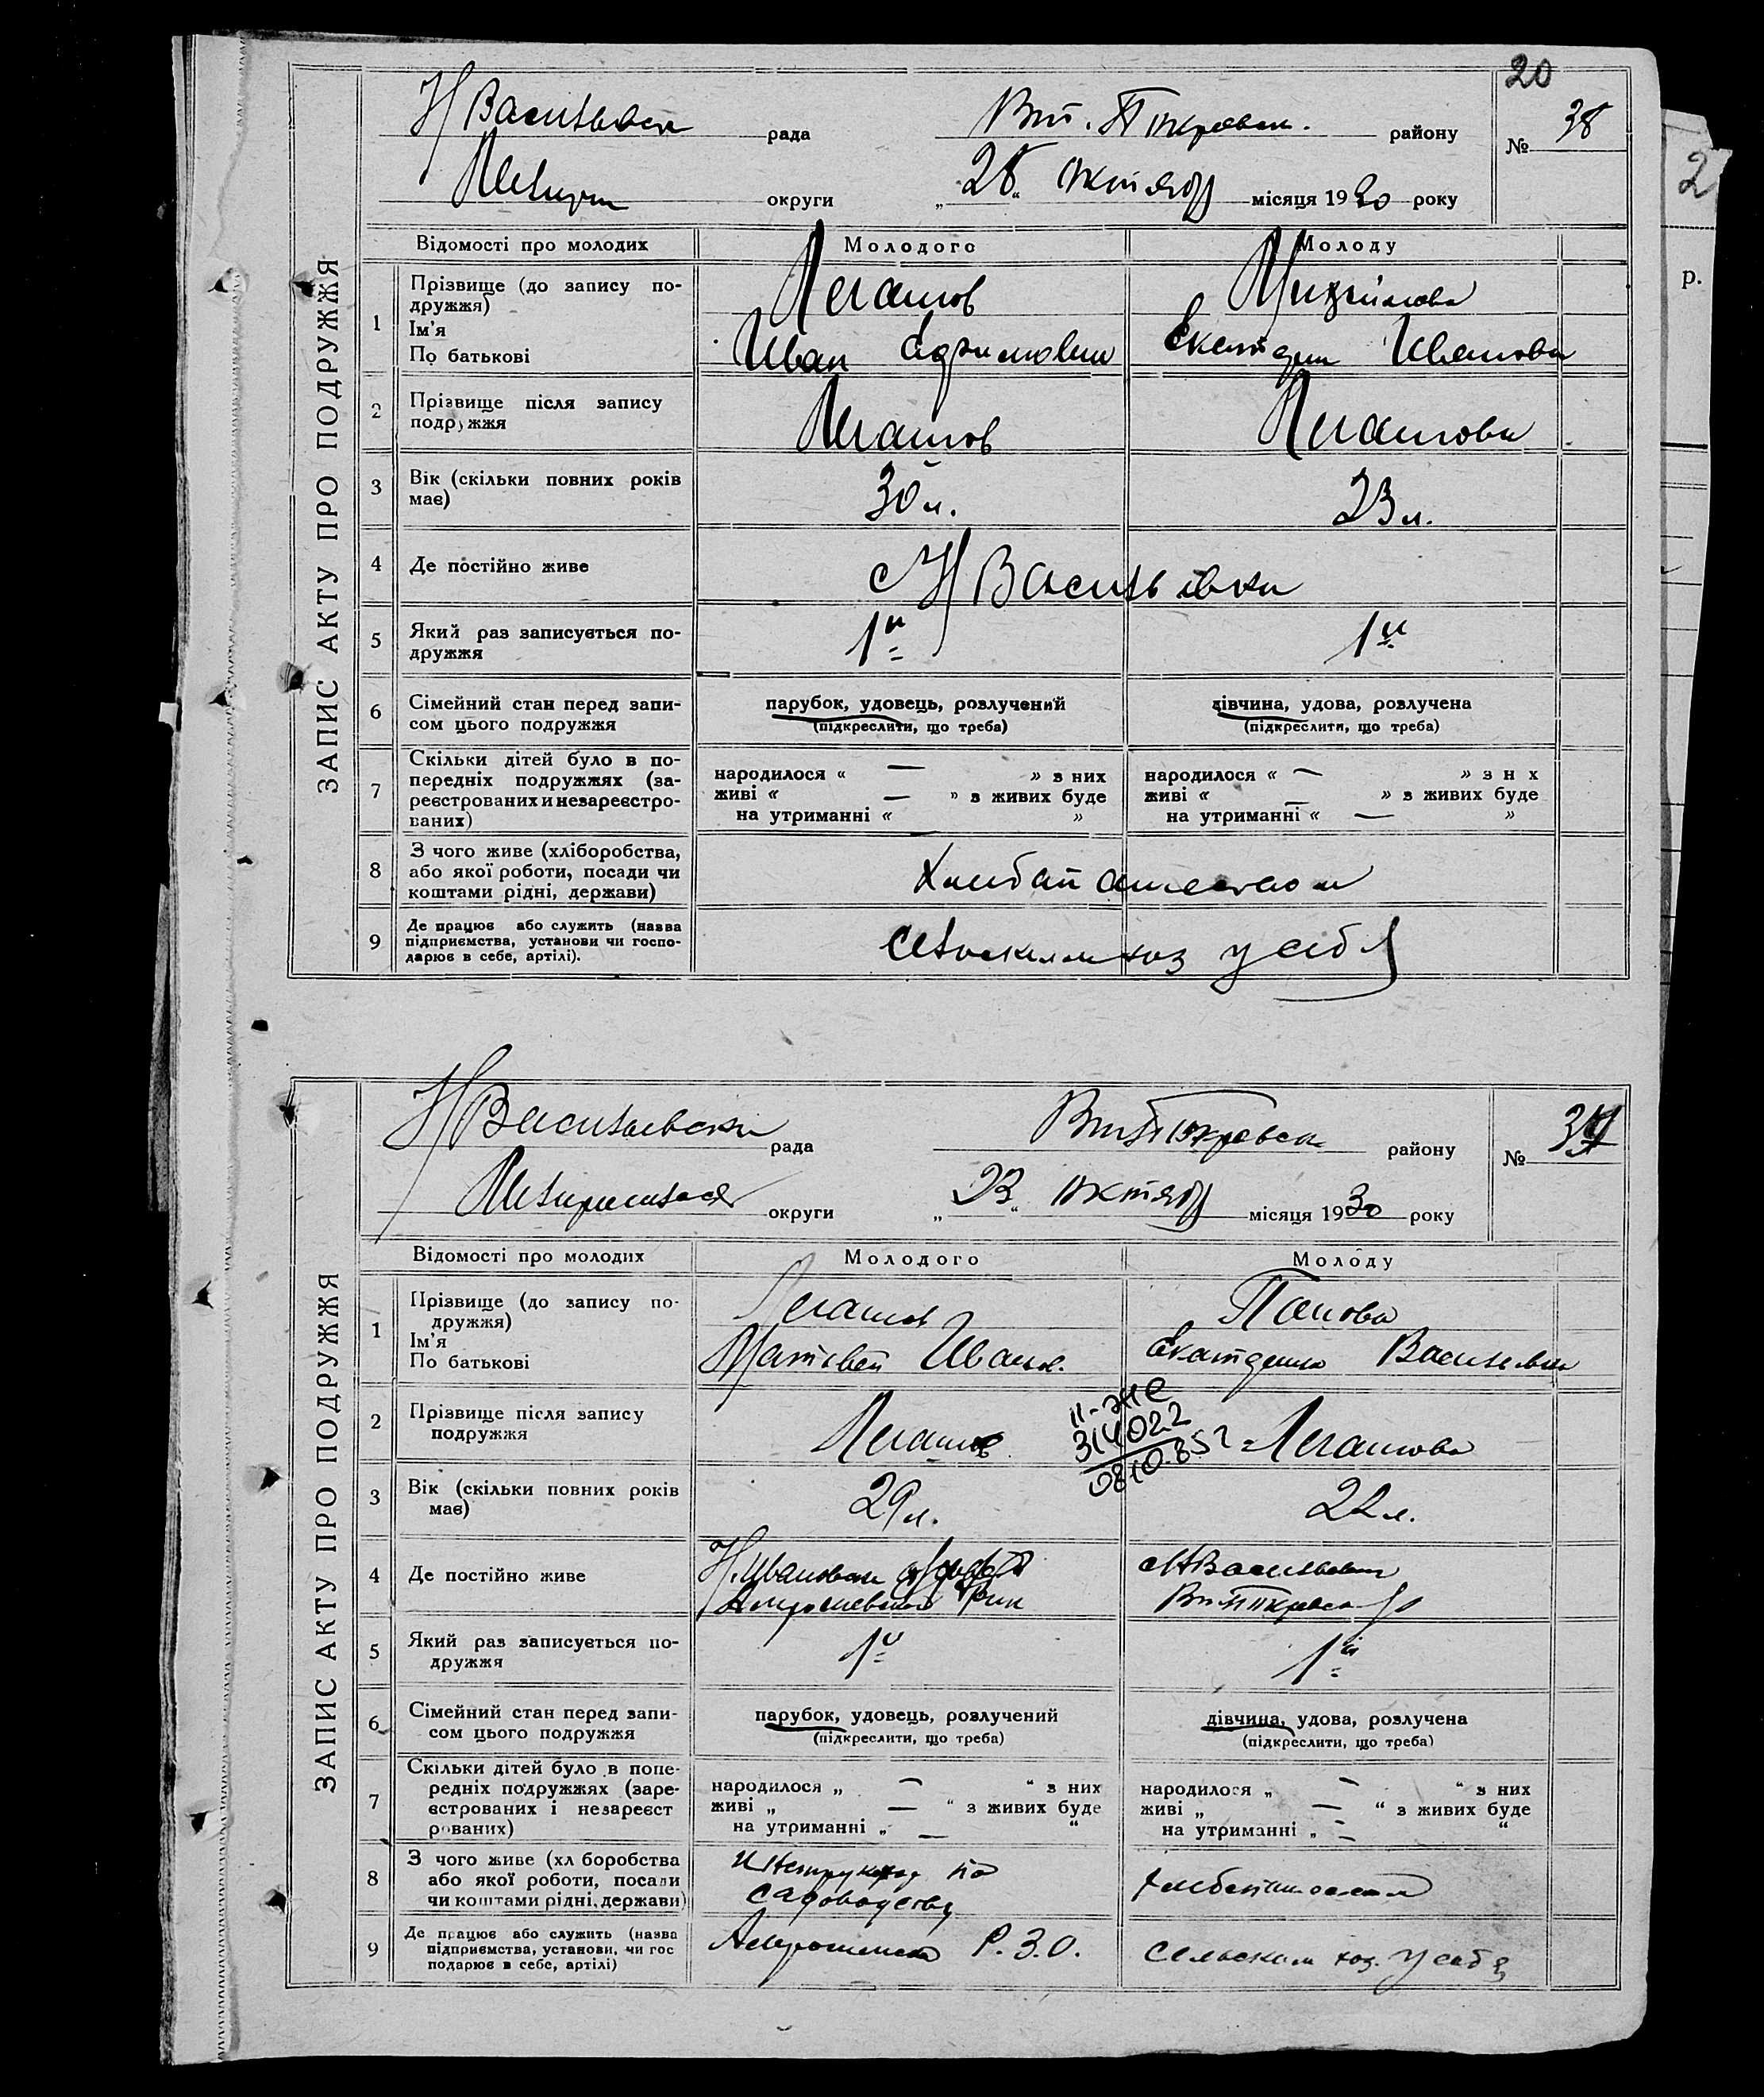 20
Н Васильевск рада
района
району
№ 38
округи
„28“ октября місяця 1930 року
ЗАПИС АКТУ ПРО ПОДРУЖЖЯ
Відомості про молодих Молодого Молоду
1 Прізвище (до запису по-
дружжя)
Ім'я
По батькові
Легашов
Иван
Ивановна
2 Прізвище після запису
подружжя
Легашов Легашова
3 Вік (скільки повних років
має)
30 л. 23 л.
4 Де постійно живе
с Н Васильевка
5 Який раз записується по-
дружжя
1й 1й
6 Сімейний стан перед запи-
сом цього подружжя
парубок, удовець, розлучений
(підкреслити, що треба)
дівчина, удова, розлучена
(підкреслити, що треба)
7 Скільки дітей було в по-
передніх подружжях (за-
реєстрованих и незареєстро-
ваних)
народилося « — » з них
живі « — » з живих буде
на утриманні « »
народилося « — » з н х
живі « — » з живих буде
на утриманні « — »
8 З чого живе (хліборобства,
або якої роботи, посади чи
коштами рідні, держави)
Хлебопашеством
9 Де працює або служить (назва
підприємства, установи чи госпо-
дарює в себе, артілі).
сельским хоз у себя
Н Васильевска рада
району
№ 39
округи
„23“ октября місяця 1930 року
ЗАПИС АКТУ ПРО ПОДРУЖЖЯ
Відомості про молодих Молодого Молоду
1 Прізвище (до запису по-
дружжя)
Ім'я
По батькові
Легашов
Матвей Иванов.
Попова
Екатерина Васильевна
2 Прізвище після запису
подружжя
Легашов Легашова
II-ЖС
314022
08.10.85г
3 Вік (скільки повних років
має)
29 л. 22 л.
4 Де постійно живе
Н. Ивановка
5 Який раз записується по-
дружжя
1й 1й
6 Сімейний стан перед запи-
сом цього подружжя
парубок, удовець, розлучений
(підкреслити, що треба)
дівчина, удова, розлучена
(підкреслити, що треба)
7 Скільки дітей було в попе-
редніх подружжях (заре-
єстрованих і незареєст
рованих)
народилося „ — “ з них
живі „ — “ з живих буде
на утриманні „ — “
народилося „ — “ з них
живі „ — “ з живих буде
на утриманні „ — “
8 З чого живе (хл боробства
або якої роботи, посади
чи коштами рідні, держави)
Инструктор по
садоводству
Хлебопашеством
9 Де працює або служить (назва
підприємства, установи, чи гос
подарює в себе, артілі)
Р.З.О.
сельским хоз. у себя
2
р.